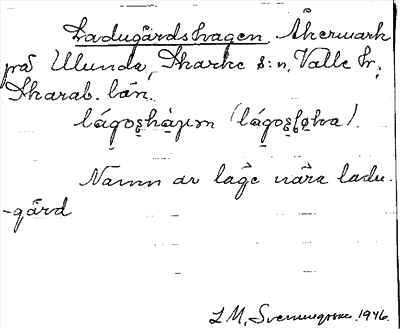 Ladugårdshagen. Åkermark
på Ulunda, Skarke s:n, Valle hr,
Skarab. län.
lágoshàɟən (lágos
Namn av läge nära ladu-
-gård
L M, Svenungsson. 1946.